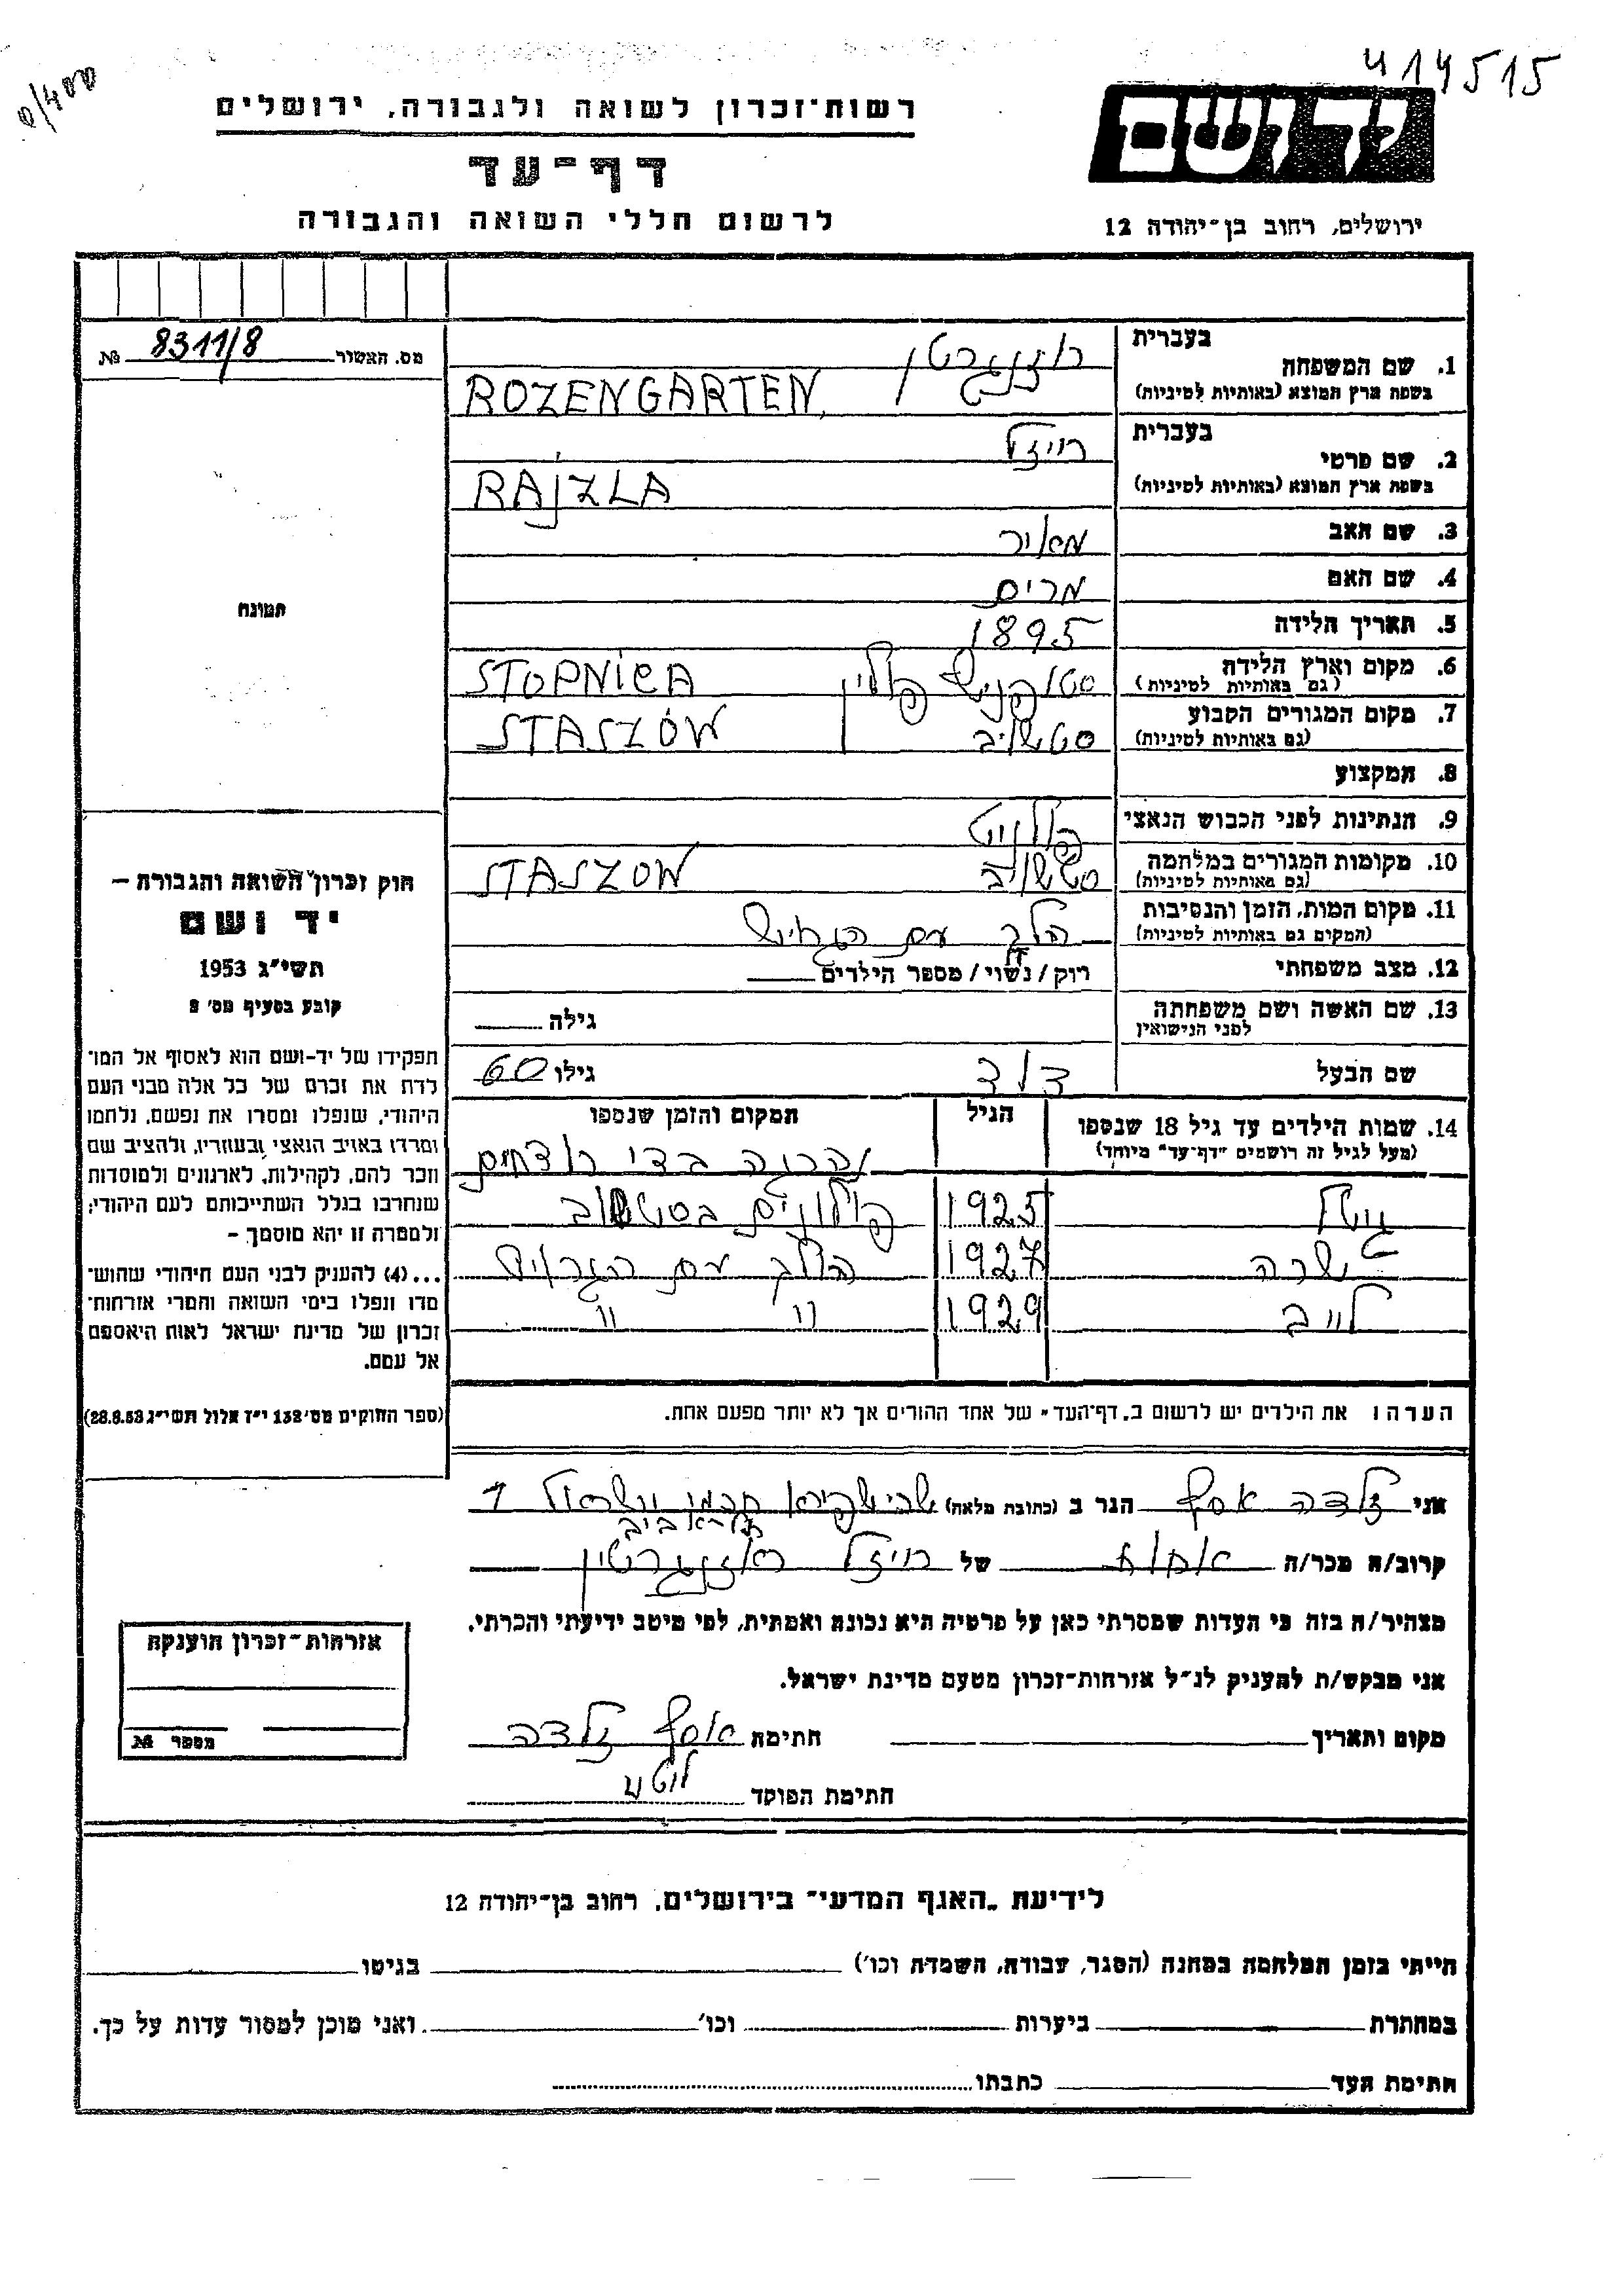 414515
יד ושם
רשות־זכרון לשואה ולגבורה, ירושלים
דף־עד
לרשום חללי השואה והגבורה
ירושלים, רחוב בן־יהודה 12
מס. האשור 8311/8 №
תמונה
חוק זכרון השואה והגבורה —
יד ושם
תשי״ג 1953
קובע בסעיף מס׳ 2
תפקידו של יד-ושם הוא לאסוף אל המו־
לדת את זכרם של כל אלה מבני העם
היהודי, שנפלו ומסרו את נפשם, נלחמו
ומרדו באויב הנאצי ובעוזריו, ולהציב שם
וזכר להם, לקהילות, לארגונים ולמוסדות
שנחרבו בגלל השתייכותם לעם היהודי;
ולמטרה זו יהא מוסמך —
...(4) להעניק לבני העם היהודי שהוש־
מדו ונפלו בימי השואה והמרי אזרחות־
זכרון של מדינת ישראל לאות היאספם
אל עמם.
(ספר החוקים מס׳ 132 י״ז אלול תשי״ג 28.8.53)
בעברית
1. שם המשפחה רוזנגרטן
בשפת ארץ המוצא (באותיות לטיניות) ROZENGARTEN
בעברית
2. שם פרטי רייזל
בשפת ארץ המוצא (באותיות לטיניות) RAJZLA
3. שם האב מאיר
4. שם האם מרים
5. תאריך הלידה 1895
6. מקום וארץ הלידה פולין STOPNICA
(גם באותיות לטיניות)
7. מקום המגורים הקבוע סטשוב STASZÓW
(גם באותיות לטיניות)
8. המקצוע
9. הנתינות לפני הכבוש הנאצי
10. מקומות המגורים במלחמה סטשוב STASZOW
(גם באותיות לטיניות)
11. מקום המות, הזמן והנסיבות הלך עם הגרוש
(המקום גם באותיות לטיניות)
12. מצב משפחתי רוק/נשוי/מספר הילדים
13. שם האשה ושם משפחתה גילה
לפני הנישואין
שם הבעל דוד גילו 60
14. שמות הילדים עד גיל 18 שנספו הגיל המקום והזמן שנספו
(מעל לגיל זה רושמים ״דף-עד״ מיוחד) נהרגה בידי רוצחים
גיטל 1925 פולונים בסטשוב
שרה 1927 הלך עם הגרוש
לייב 1929 " "
הערה: את הילדים יש לרשום ב„דף־העד״ של אחד ההורים אך לא יותר מפעם אחת.
אני זלדה אסף הגר ב (כתובת מלאה) חכמי ישראל 1
תל-אביב
קרוב/ה מכר/ה של רייזל רוזנגרטין
מצהיר/ה בזה כי העדות שמסרתי כאן על פרטיה היא נכונה ואמתית, לפי מיטב ידיעתי והכרתי.
אני מבקש/ת להעניק לנ״ל אזרחות-זכרון מטעם מדינת ישראל.
מקום ותאריך חתימת אסף זלדה
חתימת הפוקד
אזרחות־זכרון הוענקה
מספר №
לידיעת „האגף המדעי״ בירושלים, רחוב בן־יהודה 12
הייתי בזמן המלחמה במחנה (הסגר, עבודה, השמדה וכו׳) בגיטו
במחתרת ביערות וכו׳ ואני מוכן למסור עדות על כך.
חתימת העד כתבתו